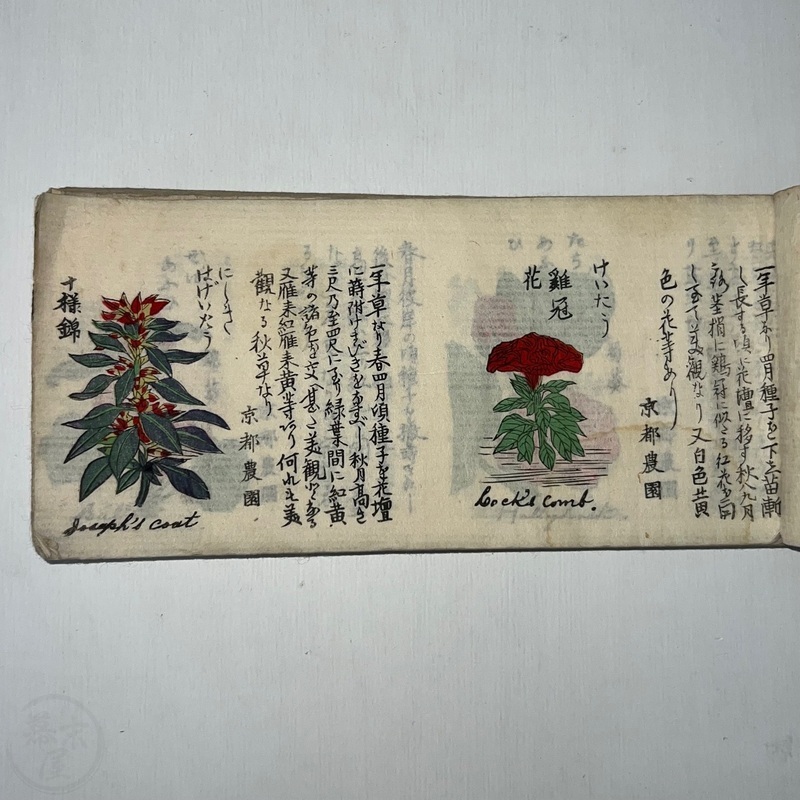 一年草なり四月種子を下し苗漸
し長する頃に花壇に移す秋八九月
莖梢に鶏冠に似たる紅花を
美観なり又白色黄
色の花等あり
京都農園
けいとう
雞冠
花
Cock's comb.
一年草なり春四月頃種子を花壇
に蒔附けまびきをなすべし秋月高さ
三尺乃至四尺になり緑葉間に紅黄
等の諸色を交へ甚だ美観
又雁来紅雁来黄等あり何れも美
観なる秋草なり
京都農園
にしき
はげいとう
十様錦
Joseph's coat